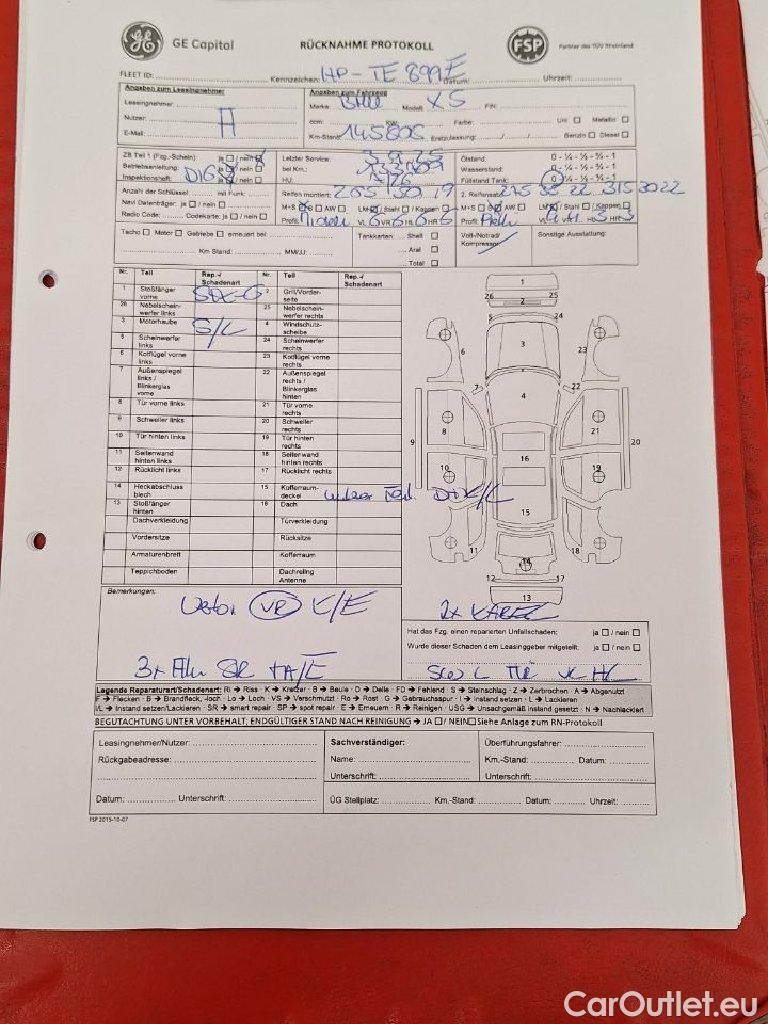 GE Capital RÜCKNAHME PROTOKOLL FSP Partner des TÜV Rheinland
FLEET ID: Kennzeichen: HP-TE 899E Datum: Uhrzeit:
Angaben zum Leasingnehmer Angaben zum Fahrzeug
Leasingnehmer: Marke: BMW Modell: X5 FIN:
Nutzer: A ccm: KW: Farbe: Uni Metallic
E-Mail: Km-Stand: Erstzulassung: / / Benzin Diesel
ZB Teil 1 (Fzg.-Schein) ja / nein Letzter Service: Ölstand: 0 - ¼ - ½ - ¾ - 1
Betriebsanleitung: ja / nein bei Km.: Wasserstand: 0 - ¼ - ½ - ¾ - 1
Inspektionsheft: DIG ja / nein HU: Füllstand Tank: 0 - ¼ - ½ - ¾ - 1
Anzahl der Schlüssel: mit Funk: Reifen montiert: 265 50 19 2. Reifensatz: 275 35 22 315 30 22
Navi Datenträger: ja / nein M+S SO AW LM / Stahl / Kappen M+S SO AW LM / Stahl / Kappen
Radio Code: Codekarte: ja / nein Profil: VL 6 VR 6 HL 6 HR 6 Profil: VL VR HL HR
Tacho Motor Getriebe erneuert bei: Tankkarten: Shell Voll-/Notrad/ Sonstige Ausstattung:
Aral Kompressor
Km Stand: MM/JJ: Total
Nr. Teil Rep.-/ Schadenart Nr. Teil Rep.-/ Schadenart
1 Stoßfänger vorne 2 Grill/Vorderseite
26 Nebelscheinwerfer links 25 Nebelscheinwerfer rechts
3 Motorhaube S/L 4 Windschutzscheibe
5 Scheinwerfer links 24 Scheinwerfer rechts
6 Kotflügel vorne links 23 Kotflügel vorne rechts
7 Außenspiegel links / Blinkerglas vorne 22 Außenspiegel rechts / Blinkerglas hinten
8 Tür vorne links 21 Tür vorne rechts
9 Schweller links 20 Schweller rechts
10 Tür hinten links 19 Tür hinten rechts
11 Seitenwand hinten links 18 Seitenwand hinten rechts
12 Rücklicht links 17 Rücklicht rechts
14 Heckabschlussblech 15 Kofferraumdeckel
13 Stoßfänger hinten 16 Dach
Dachverkleidung Türverkleidung
Vordersitze Rücksitze
Armaturenbrett Kofferraum
Teppichboden Dachreling Antenne
1 26 2 25 5 24 6 3 23 7 22 4 8 21 9 20 10 16 19 15 11 18 14 12 17 13
Bemerkungen:
VR K/E
2x KABEL
Hat das Fzg. einen reparierten Unfallschaden: ja / nein
Wurde dieser Schaden dem Leasinggeber mitgeteilt: ja / nein
3x Alu SR
Legende Reparaturart/Schadenart: RI → Riss · K → Kratzer · B → Beule · D → Delle · FD → Fehlend · S → Steinschlag · Z → Zerbrochen · A → Abgenutzt
F → Flecken · B → Brandfleck, -loch · Lo → Loch · VS → Verschmutzt · Ro → Rost · G → Gebrauchsspur · I → Instand setzen · L → Lackieren
I/L → Instand setzen/Lackieren · SR → smart repair · SP → spot repair · E → Erneuern · R → Reinigen · USG → Unsachgemäß instand gesetzt · N → Nachlackiert
BEGUTACHTUNG UNTER VORBEHALT; ENDGÜLTIGER STAND NACH REINIGUNG → JA / NEIN Siehe Anlage zum RN-Protokoll
Leasingnehmer/Nutzer: Sachverständiger: Überführungsfahrer:
Rückgabeadresse: Name: Km.-Stand: Datum:
Unterschrift: Unterschrift:
Datum: Unterschrift: ÜG Stellplatz: Km.-Stand: Datum: Uhrzeit:
FSP 2015-10-07
CarOutlet.eu